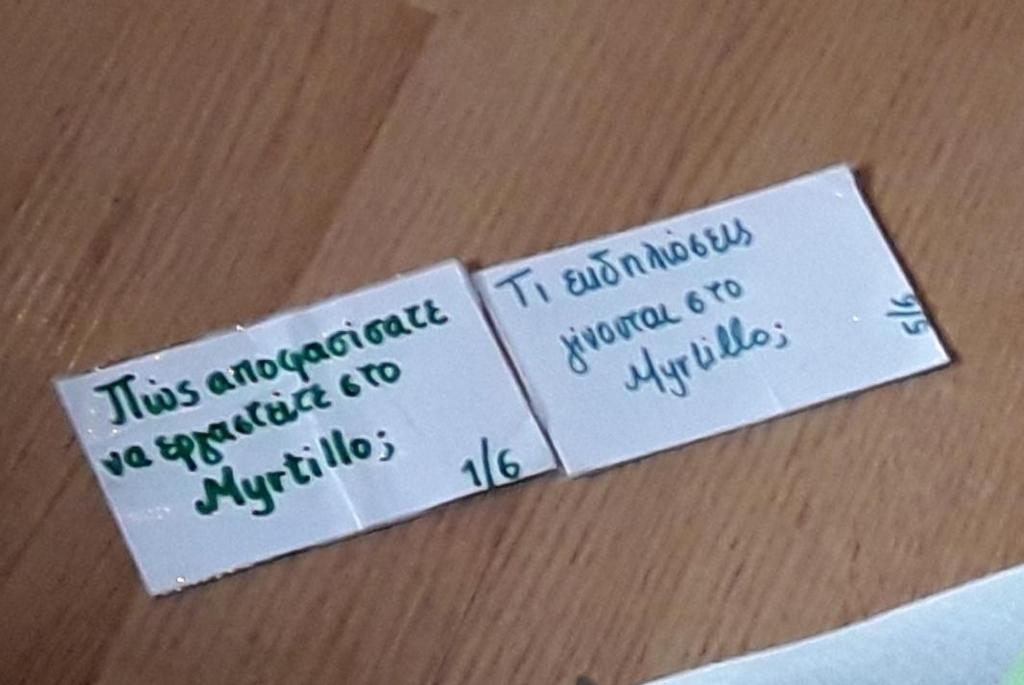 Πώς αποφασίσατε
να εργαστείτε στο
Myrtillo;
1/6
Τι εκδηλώσεις
γίνονται στο
Myrtillo;
5/6